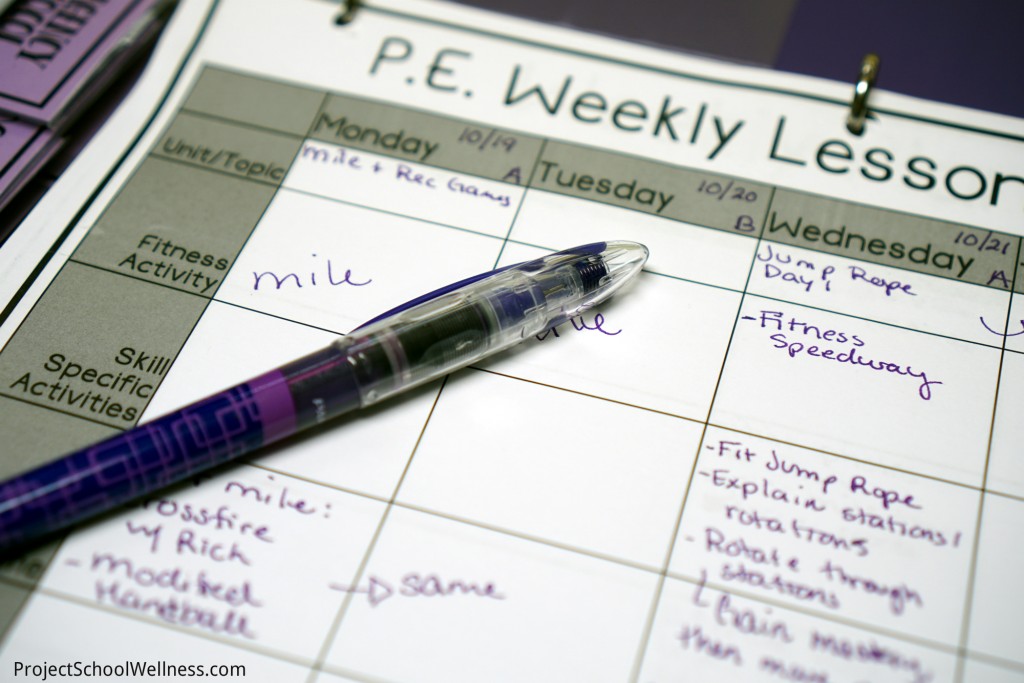 P.E. Weekly Lesson
Monday 10/19 A
Tuesday 10/20 B
Wednesday 10/21 A
Unit/Topic
mile + Rec Games
Jump Rope
Day!
Fitness
Activity
mile
-Fitness
Speedway
Skill
Specific
Activities
-Fit Jump Rope
-Explain stations/
rotations
-Rotate through
stations
mile:
w/ Rich
-modified
Handball
→ same
then
ProjectSchoolWellness.com